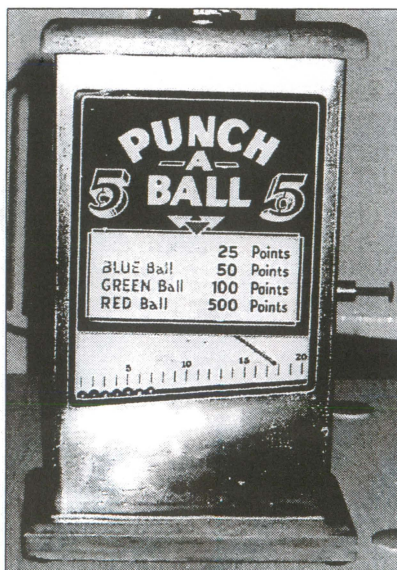 PUNCH
-A-
BALL
5 5
25 Points
BLUE Ball 50 Points
GREEN Ball 100 Points
RED Ball 500 Points
5 10 15 20